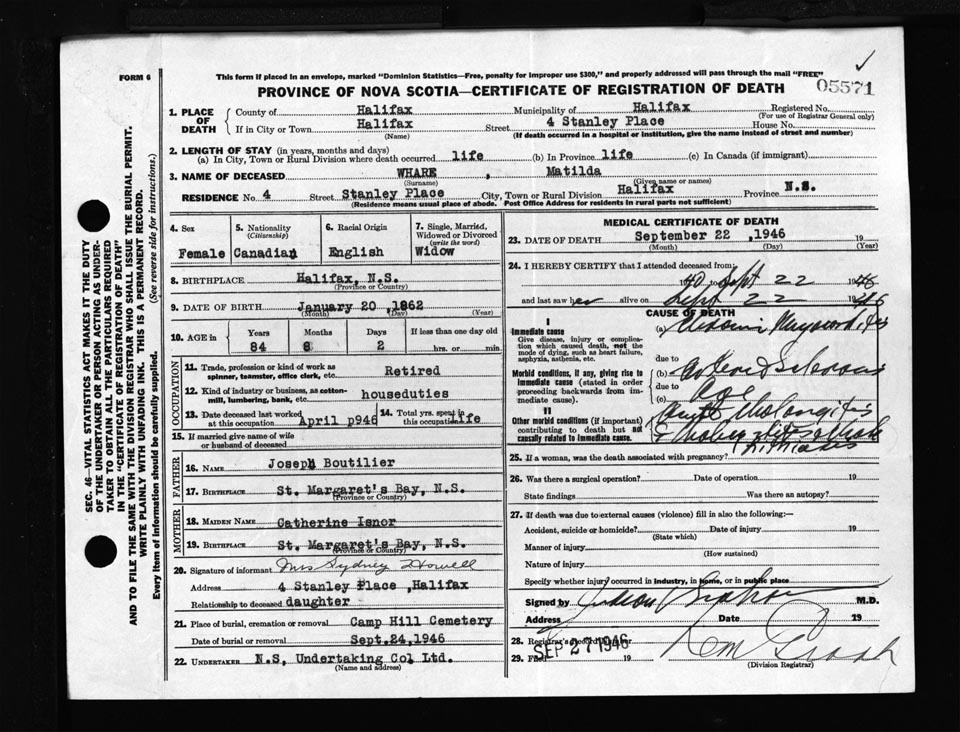 This form if placed in an envelope, marked "Dominion Statistics—Free, penalty for improper use $300," and properly addressed will pass through the mail "FREE"
FORM 6
05571
PROVINCE OF NOVA SCOTIA—CERTIFICATE OF REGISTRATION OF DEATH
SEC. 46—VITAL STATISTICS ACT MAKES IT THE DUTY
OF THE UNDERTAKER OR PERSON ACTING AS UNDER-
TAKER TO OBTAIN ALL THE PARTICULARS REQUIRED
IN THE "CERTIFICATE OF REGISTRATION OF DEATH"
AND TO FILE THE SAME WITH THE DIVISION REGISTRAR WHO SHALL ISSUE THE BURIAL PERMIT.
WRITE PLAINLY WITH UNFADING INK. THIS IS A PERMANENT RECORD.
Every item of information should be carefully supplied. (See reverse side for instructions.)
1. PLACE OF DEATH County of Halifax Municipality of Halifax Registered No.
(For use of Registrar General only)
If in City or Town Halifax Street 4 Stanley Place House No.
(Name) (If death occurred in a hospital or institution, give the name instead of street and number)
2. LENGTH OF STAY (in years, months and days)
(a) In City, Town or Rural Division where death occurred life (b) In Province life (c) In Canada (if immigrant)
3. NAME OF DECEASED WHARE, Matilda
(Surname) (Given name or names)
RESIDENCE No. 4 Street Stanley Place City, Town or Rural Division Halifax Province N.S.
(Residence means usual place of abode. Post Office Address for residents in rural parts not sufficient)
4. Sex 5. Nationality (Citizenship) 6. Racial Origin 7. Single, Married, Widowed or Divorced (write the word)
Female Canadian English Widow
8. BIRTHPLACE Halifax, N.S.
(Province or Country)
9. DATE OF BIRTH January 20 ,1862
(Month) (Day) (Year)
10. AGE in Years Months Days If less than one day old
84 8 2 hrs. or min.
OCCUPATION
11. Trade, profession or kind of work as spinner, teamster, office clerk, etc. Retired
12. Kind of industry or business, as cotton-mill, lumbering, bank, etc. houseduties
13. Date deceased last worked at this occupation April p946 14. Total yrs. spent in this occupation life
15. If married give name of wife or husband of deceased
FATHER
16. NAME Joseph Boutilier
17. BIRTHPLACE St. Margaret's Bay, N.S.
(Province or Country)
MOTHER
18. MAIDEN NAME Catherine Isnor
19. BIRTHPLACE St. Margaret's Bay, N.S.
(Province or Country)
20. Signature of informant Mrs Sydney Howell
Address 4 Stanley Place ,Halifax
Relationship to deceased daughter
21. Place of burial, cremation or removal Camp Hill Cemetery
Date of burial or removal Sept.24,1946
22. UNDERTAKER N.S, Undertaking Co, Ltd.
(Name and address)
MEDICAL CERTIFICATE OF DEATH
23. DATE OF DEATH September 22 ,1946 19
(Month) (Day) (Year)
24. I HEREBY CERTIFY that I attended deceased from:
1940 to Sept 22 1946
and last saw her alive on Sept 22 1946
CAUSE OF DEATH
I
Immediate cause (a)
Give disease, injury or complication which caused death, not the mode of dying, such as heart failure, asphyxia, asthenia, etc.
due to
Morbid conditions, if any, giving rise to immediate cause (stated in order proceeding backwards from immediate cause). (b)
due to
(c) age
II
Other morbid conditions (if important) contributing to death but not causally related to immediate cause. Cholangitis
25. If a woman, was the death associated with pregnancy?
26. Was there a surgical operation? Date of operation 19
State findings Was there an autopsy?
27. If death was due to external causes (violence) fill in also the following:—
Accident, suicide or homicide? Date of injury 19
(State which)
Manner of injury
(How sustained)
Nature of injury
Specify whether injury occurred in industry, in home, or in public place
Signed by M.D.
Address Date 19
28. Registrar's Record Number
SEP 27 1946
29. Filed 19
(Division Registrar)